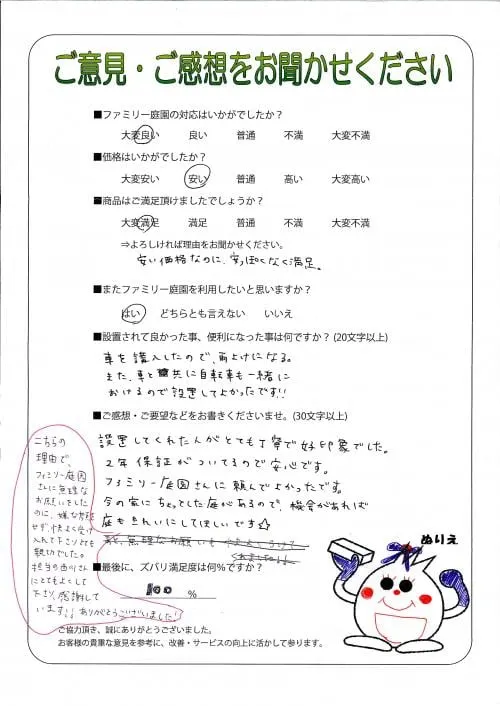 ご意見・ご感想をお聞かせください
■ファミリー庭園の対応はいかがでしたか？
大変良い 良い 普通 不満 大変不満
■価格はいかがでしたか？
大変安い 安い 普通 高い 大変高い
■商品はご満足頂けましたでしょうか？
大変満足 満足 普通 不満 大変不満
⇒よろしければ理由をお聞かせください。
安い価格なのに、安っぽくなく満足。
■またファミリー庭園を利用したいと思いますか？
はい どちらとも言えない いいえ
■設置されて良かった事、便利になった事は何ですか？(20文字以上)
車を購入したので、雨よけになる。
また、車と共に自転車も一緒に
おけるので設置してよかったです!!
■ご感想・ご要望などをお書きくださいませ。(30文字以上)
設置してくれた人がとても丁寧で好印象でした。
2年保証がついてるので安心です。
ファミリー庭園さんに頼んでよかったです。
今の家にちょっとした庭があるので、機会があれば
庭もきれいにしてほしいです☆
こちらの
理由で、
ファミリー庭園
さんに無理な
お願いをした
のに、嫌な
せず、快よく受け
入れて下さりとても
親切でした。
担当の
にとてもよくして
下さり、感謝して
います!! ありがとうございました!
■最後に、ズバリ満足度は何%ですか？
100 %
ぬりえ
ご協力頂き、誠にありがとうございました。
お客様の貴重な意見を参考に、改善・サービスの向上に活かして参ります。